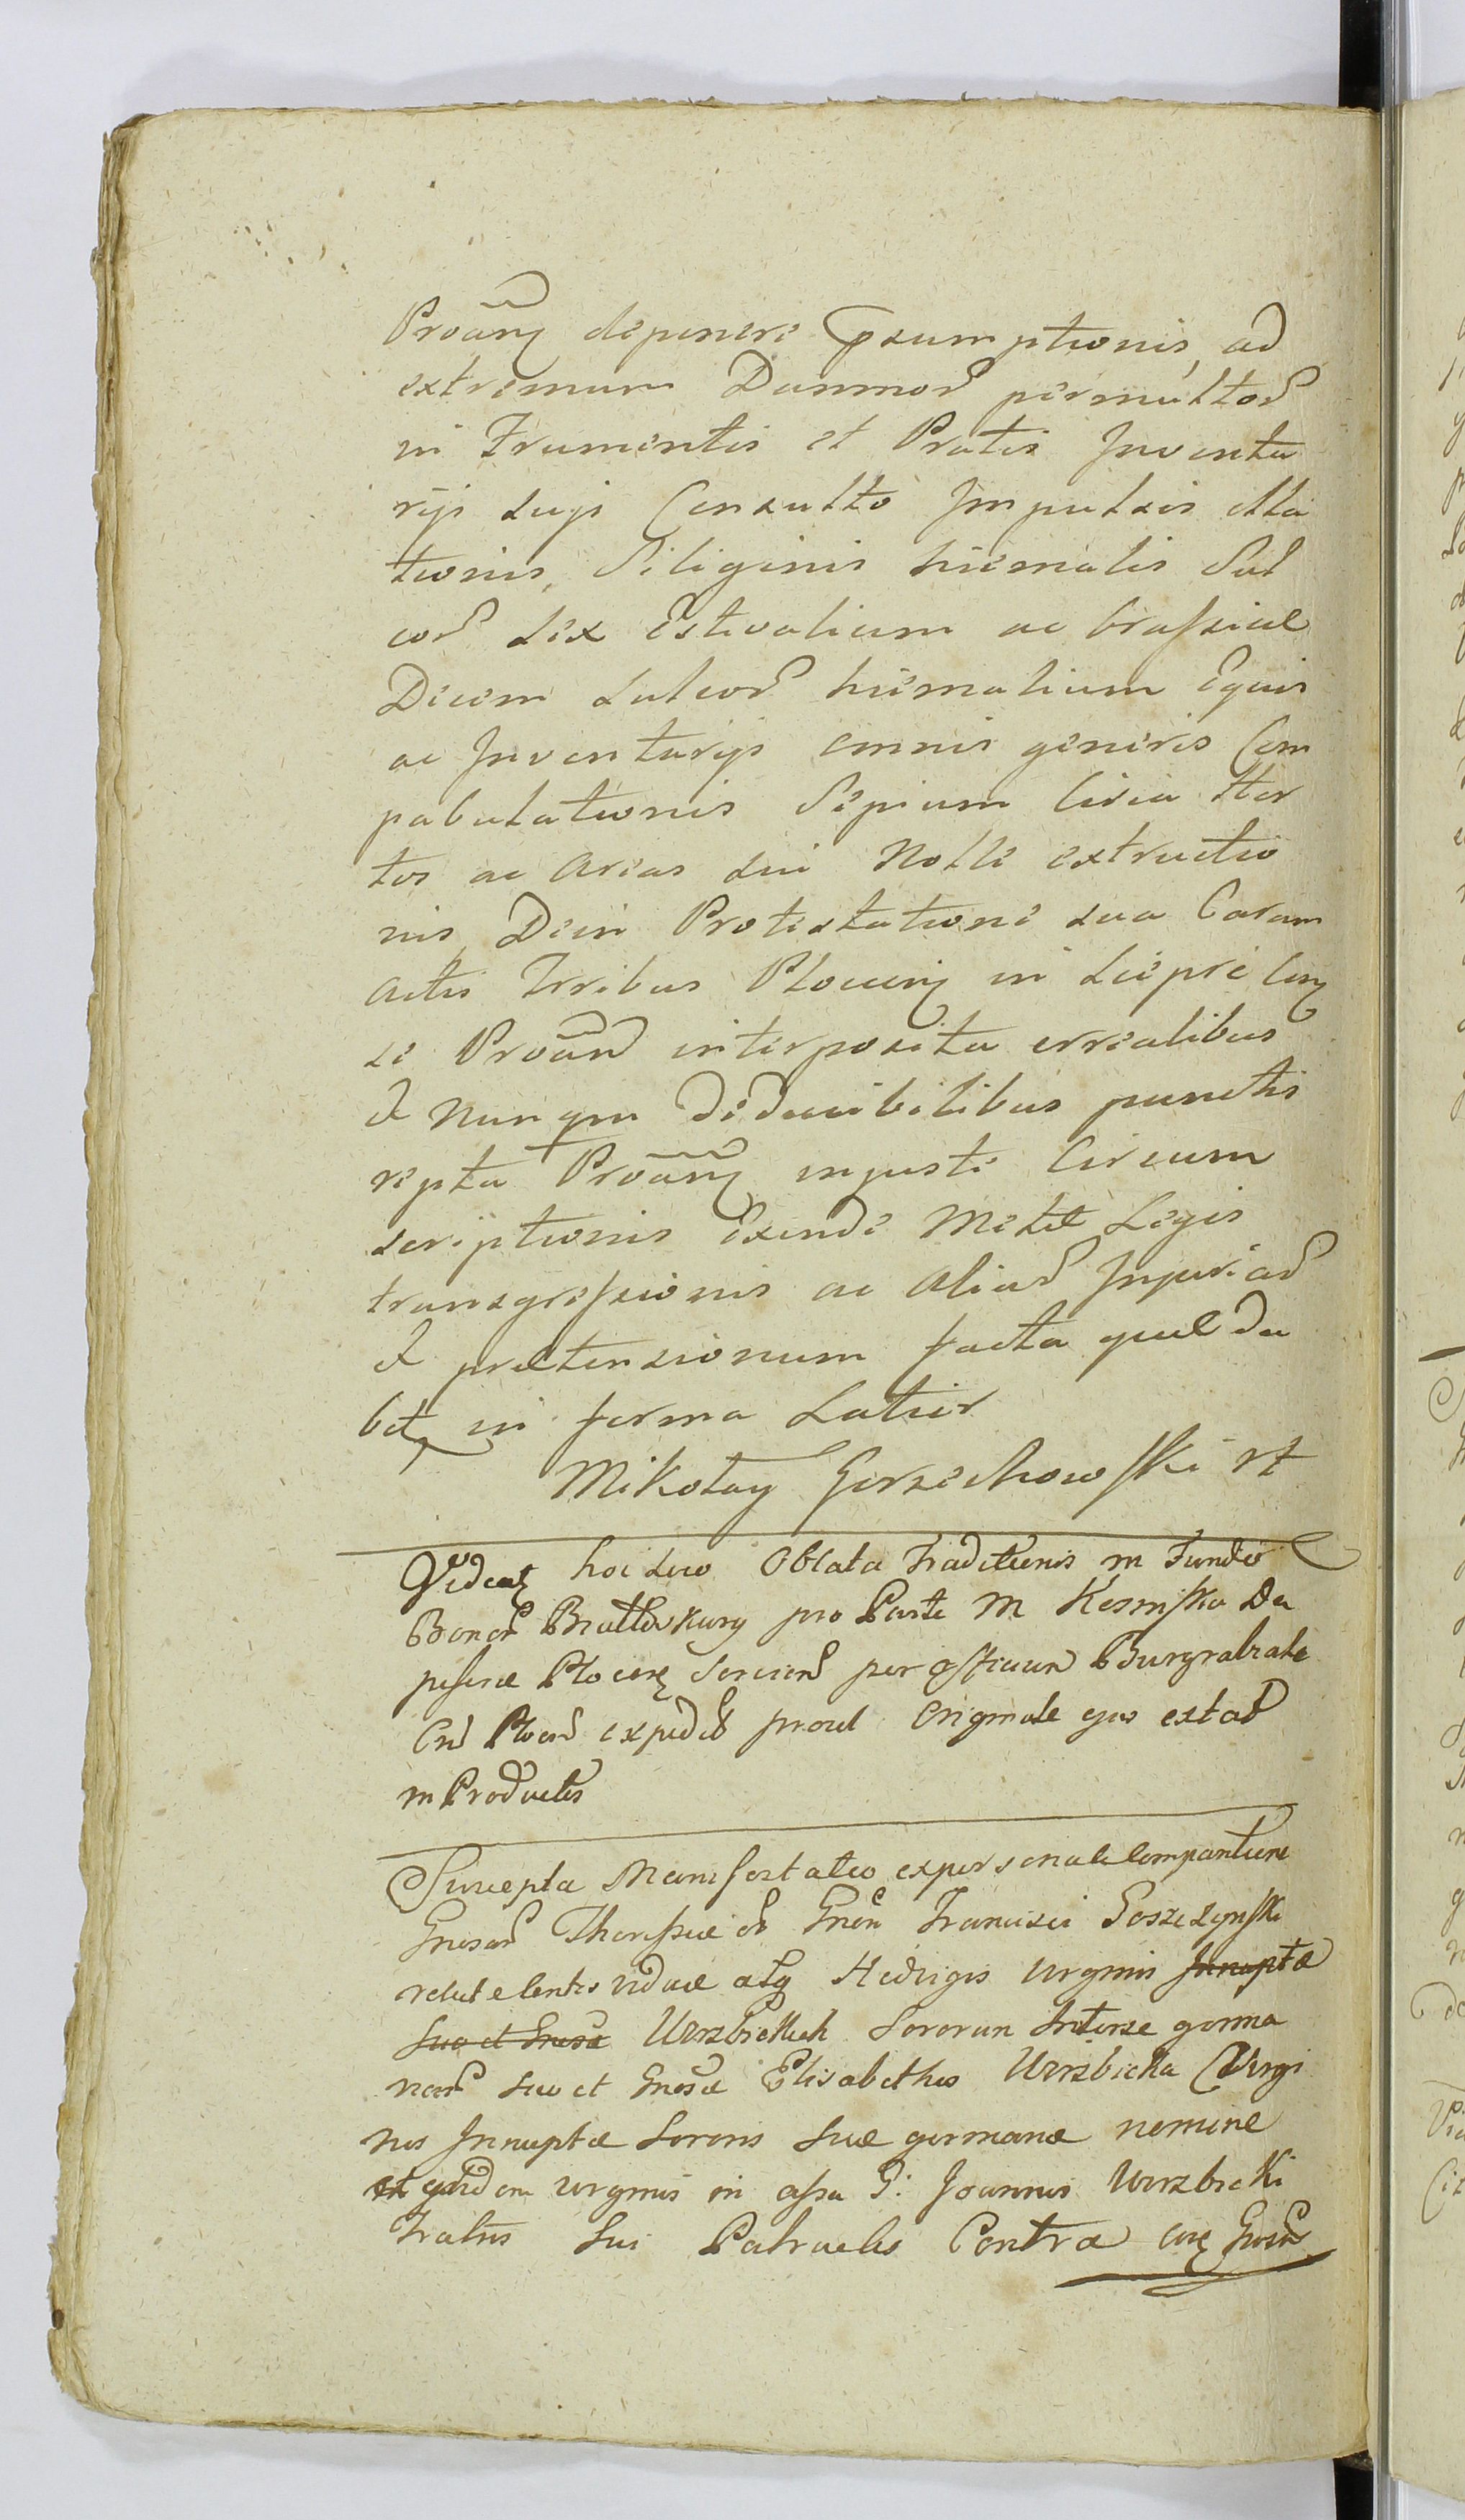 Proãnʒ deponere Psumptionis, ad
extremum Damnor permultor
in Frumentis et Pratis Inventa
rijs suyi Consulto Impulsis illa
tionis, Siliginis hiemalis Sul
cor sex Estivalium ac brassicae
Decem sulcor hiemalium Equis
ac Inventarijs omnis generis Com
pabulationis Sepium Circa Hor
tos ac Areas sui Nolle extructio
nis, Dein Protestatione sua Coram
Actis Trribus Plocen in Sieprc Con
se Proãn interposita errealibus
et nunqm deducibilibus punctis
repta Proãnʒ injuste Circum
scriptionis Exinde Metae Legis
transgressionis ac Aliar Injuriar
et praetensionum facta quae da
bit in forma Latior
Mikołay Gorzechowski rt
Videat hoc loco Oblata Traditionis in Fundo
Bonor pro Parte M Da
Plocen Servien per officium Burgrabiale
Cas Plocen expedit prout Originale ejus extat
in Productis
Suscepta Manifestatio ex personali Comparitione
Gnosar Theressiae et Gnen Francisci
relict elentis viduae atq Hedvigis Virginis Innuptae
suo et Gnosae Wirzbickich Sororum Interse germa
nar suo et Gnosae Elisabethae Wirzbicka Virgi
nis Innuptae Sororis suae germanae nomine
et quidem virginis in assa G: Joannis Wirzbicki
Fratris sui Patruelis Contra Gnosn